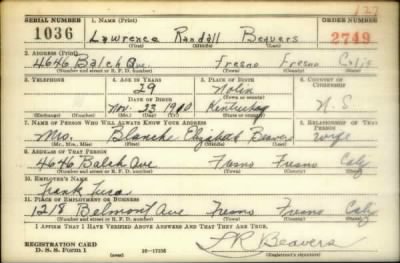 127
SERIAL NUMBER 1. NAME (Print) ORDER NUMBER
1036 Lawrence Randall Beavers 2749
(First) (Middle) (Last)
2. ADDRESS (Print)
4646 Balch Ave. Fresno Fresno Calif
(Number and street or R. F. D. number) (Town) (County) (State)
3. TELEPHONE 4. AGE IN YEARS 5. PLACE OF BIRTH 6. COUNTRY OF CITIZENSHIP
29 Nolin
DATE OF BIRTH (Town or county)
Nov. 23 Kentucky U.S.
(Exchange) (No.) (Mo.) (Day) (Yr.) (State or country)
7. NAME OF PERSON WHO WILL ALWAYS KNOW YOUR ADDRESS 8. RELATIONSHIP OF THAT PERSON
Mrs. Blanche Elizabeth Beavers
(Mr., Mrs., Miss) (First) (Middle) (Last)
9. ADDRESS OF THAT PERSON
4646 Balch Ave Fresno Fresno Calif
(Number and street or R. F. D. number) (Town) (County) (State)
10. EMPLOYER'S NAME
Frank
11. PLACE OF EMPLOYMENT OR BUSINESS
1218 Belmont Ave Fresno Fresno Calif
(Number and street or R. F. D. number) (Town) (County) (State)
I AFFIRM THAT I HAVE VERIFIED ABOVE ANSWERS AND THAT THEY ARE TRUE.
REGISTRATION CARD
D. S. S. Form 1 16—17105 L R Beavers
(Registrant's signature)